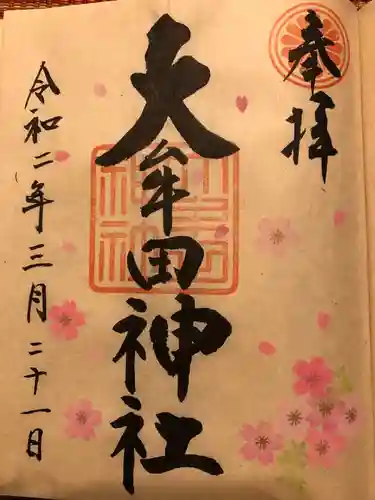 奉拝
大牟田神社
令和二年三月二十一日